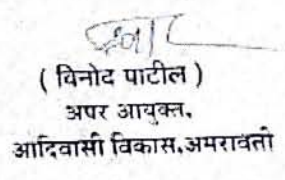 ( विनोद पाटील )
अपर आयुक्त,
आदिवासी विकास,अमरावती